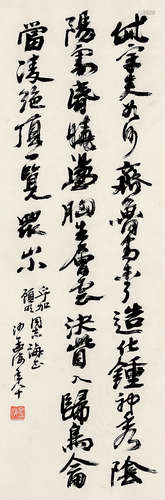 岱宗夫如何齊魯青未了造化鍾神秀陰
陽割昏曉盪胸生層雲決眥入歸鳥會
當凌絕頂一覽眾山小
同志誨正
沙孟海